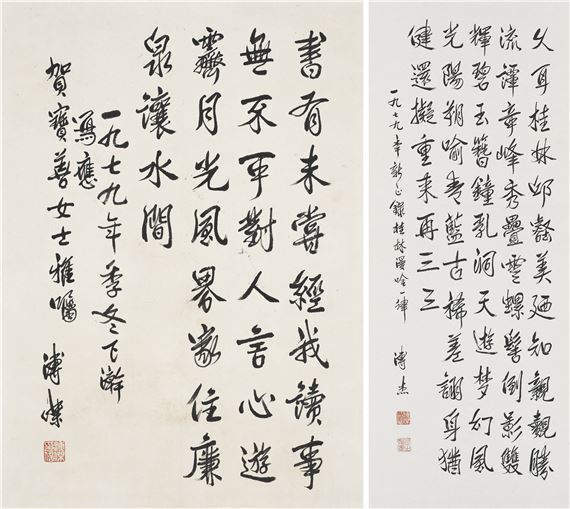 書有未嘗經我讀事
無不可對人言心遊
霽月光風界家住廉
泉讓水間
一九七九年季冬下澣
寫應
賀寶善女士雅囑
溥傑
久耳桂林邱壑美廼知親覩勝
流譚奇峰秀疊雲螺髻倒影雙
輝碧玉簪鐘乳洞天遊梦幻風
光陽朔喻青藍古稀差詡身猶
健還擬重来再三三
一九七九年新正錄桂林漫吟一律
溥杰